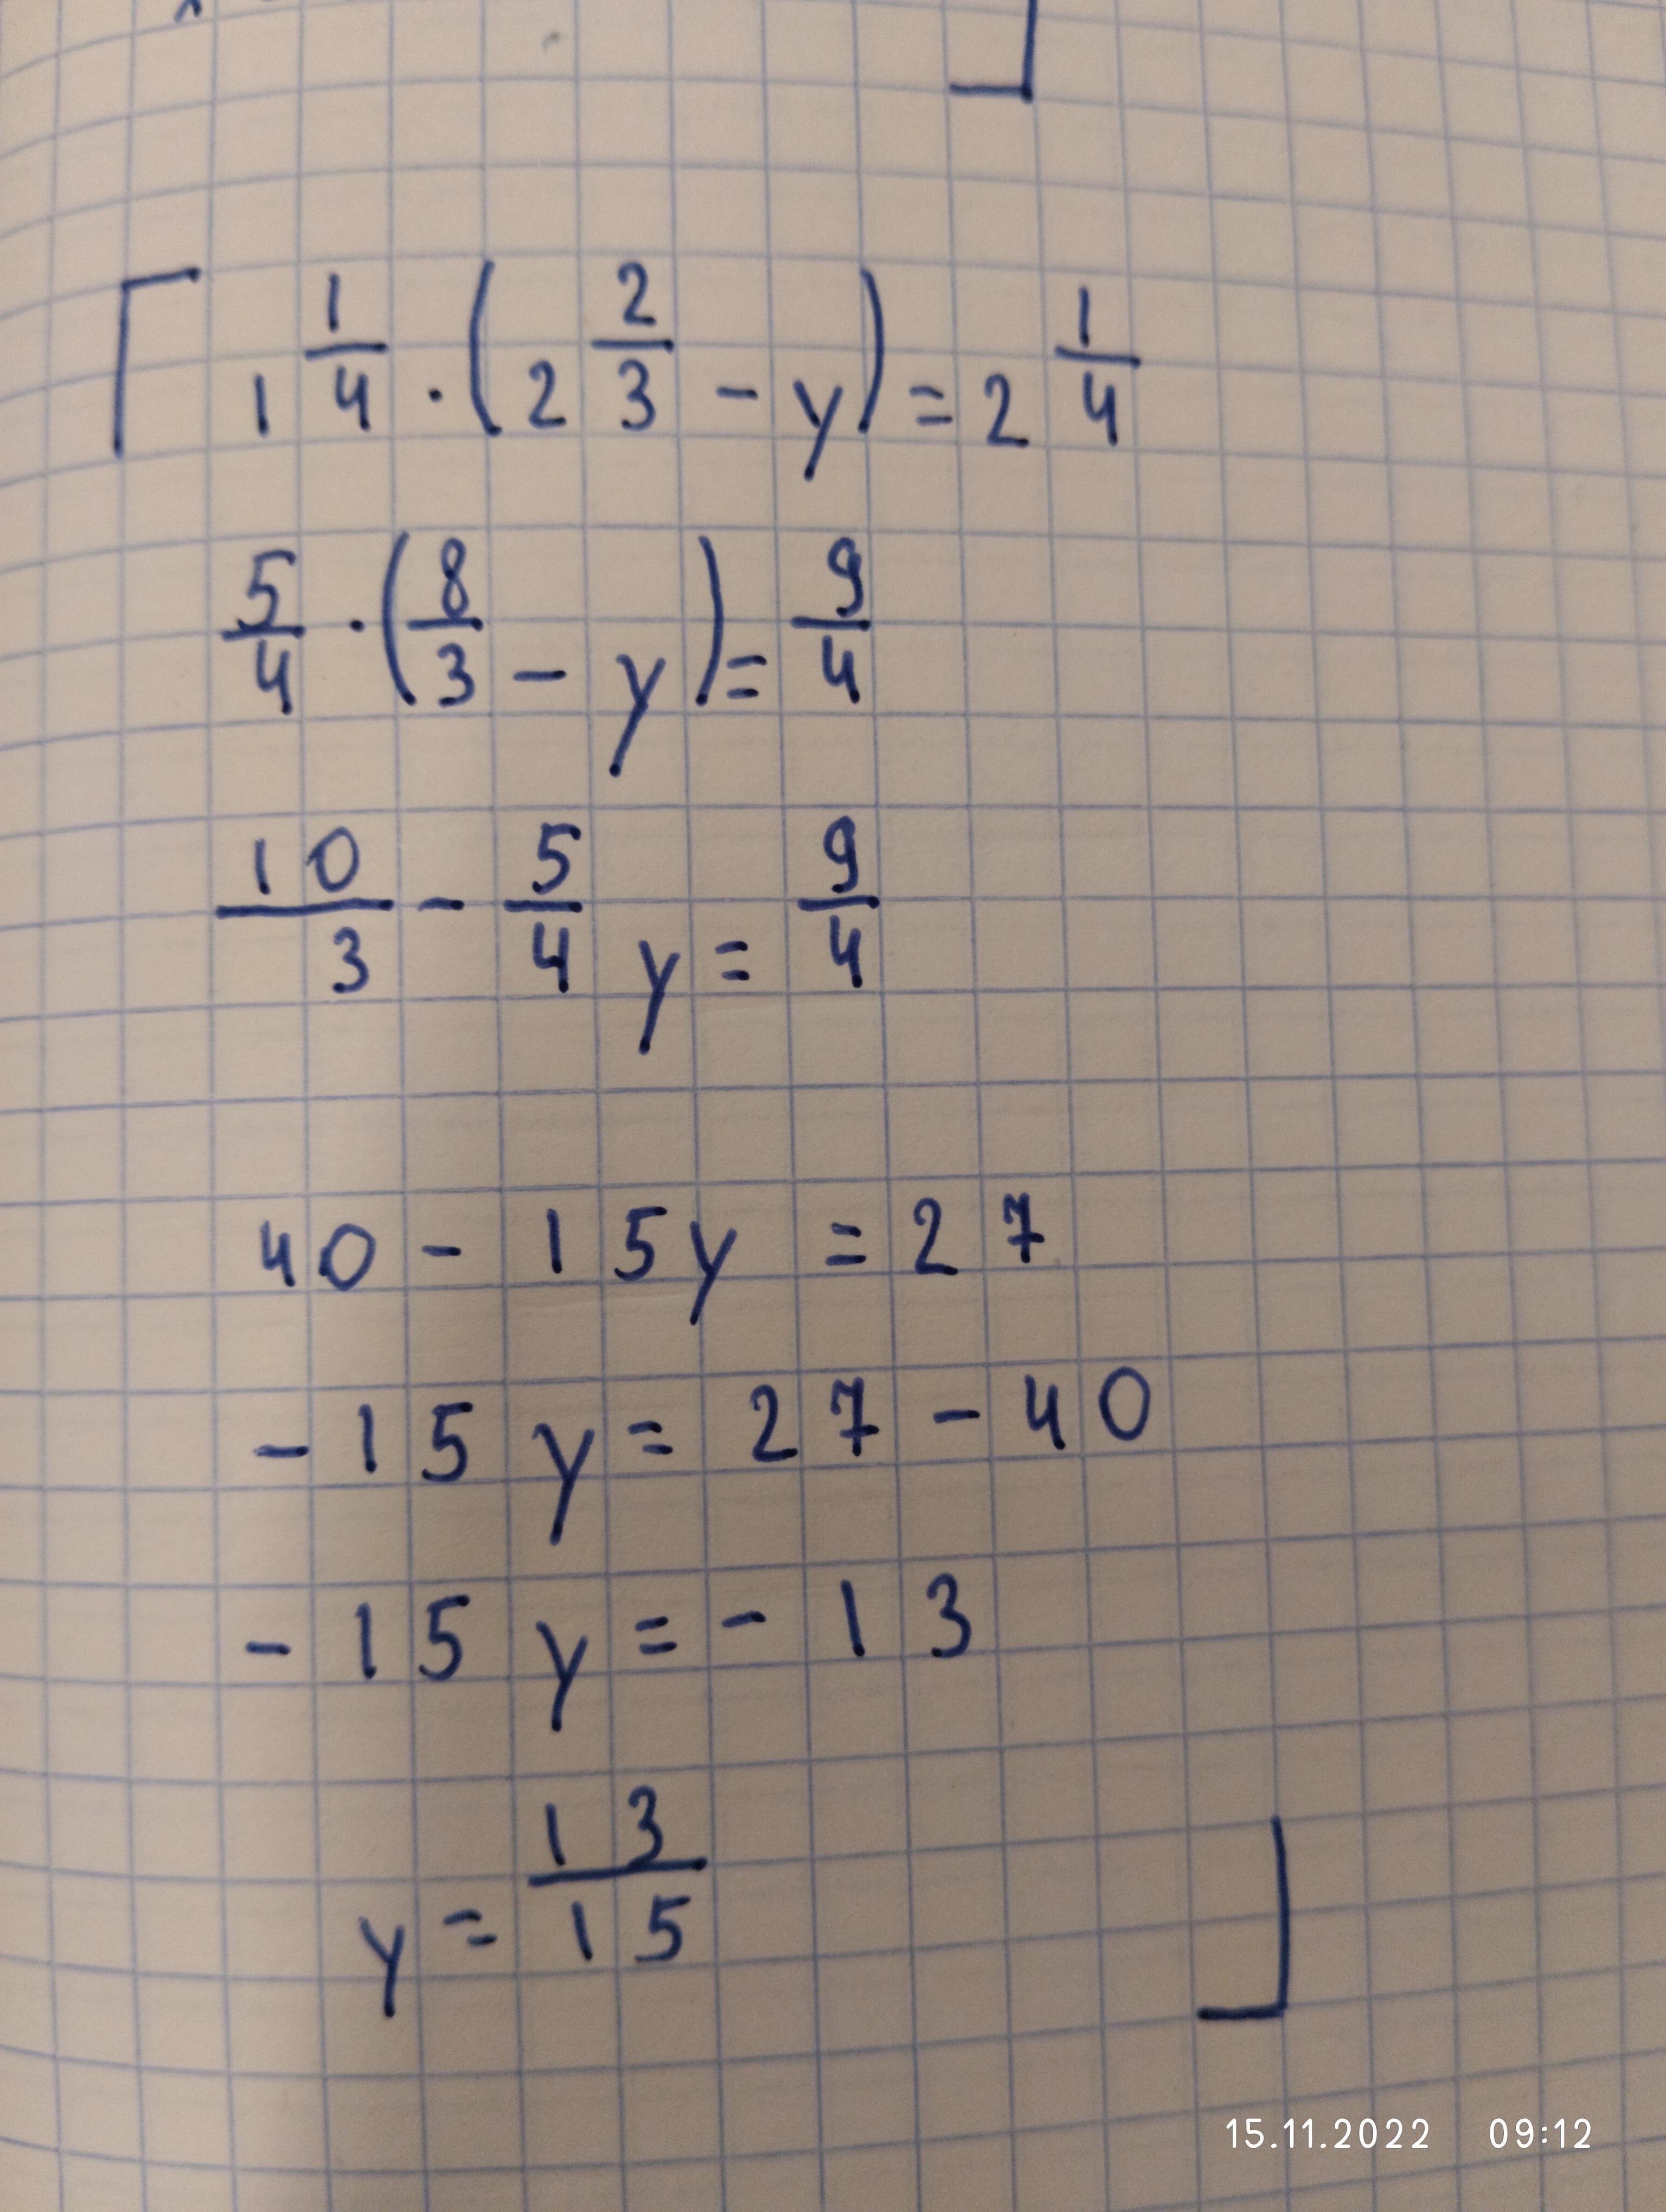 1 1/4 · (2 2/3 - y) = 2 1/4
5/4 · (8/3 - y) = 9/4
10/3 - 5/4 y = 9/4
40 - 15y = 27
-15y = 27 - 40
-15y = -13
y = 13/15
15.11.2022 09:12